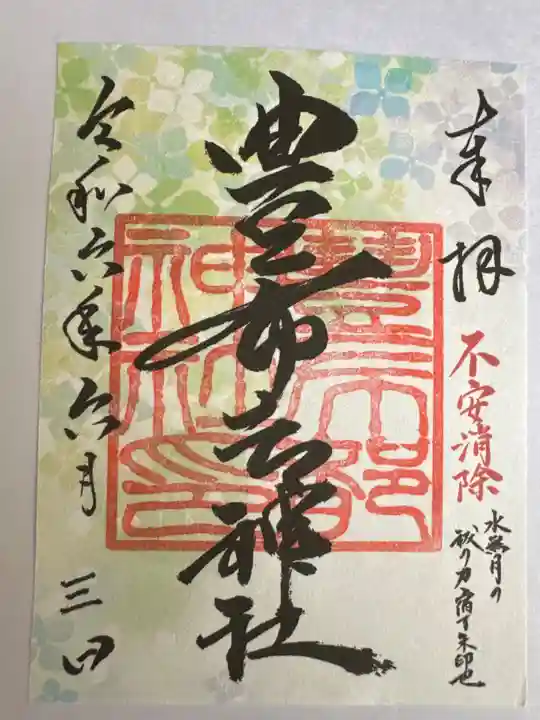 奉拝
不安消除
水無月の
祓の力宿す朱印也
豊布都神社
豊布都
神社印
令和六年六月三日